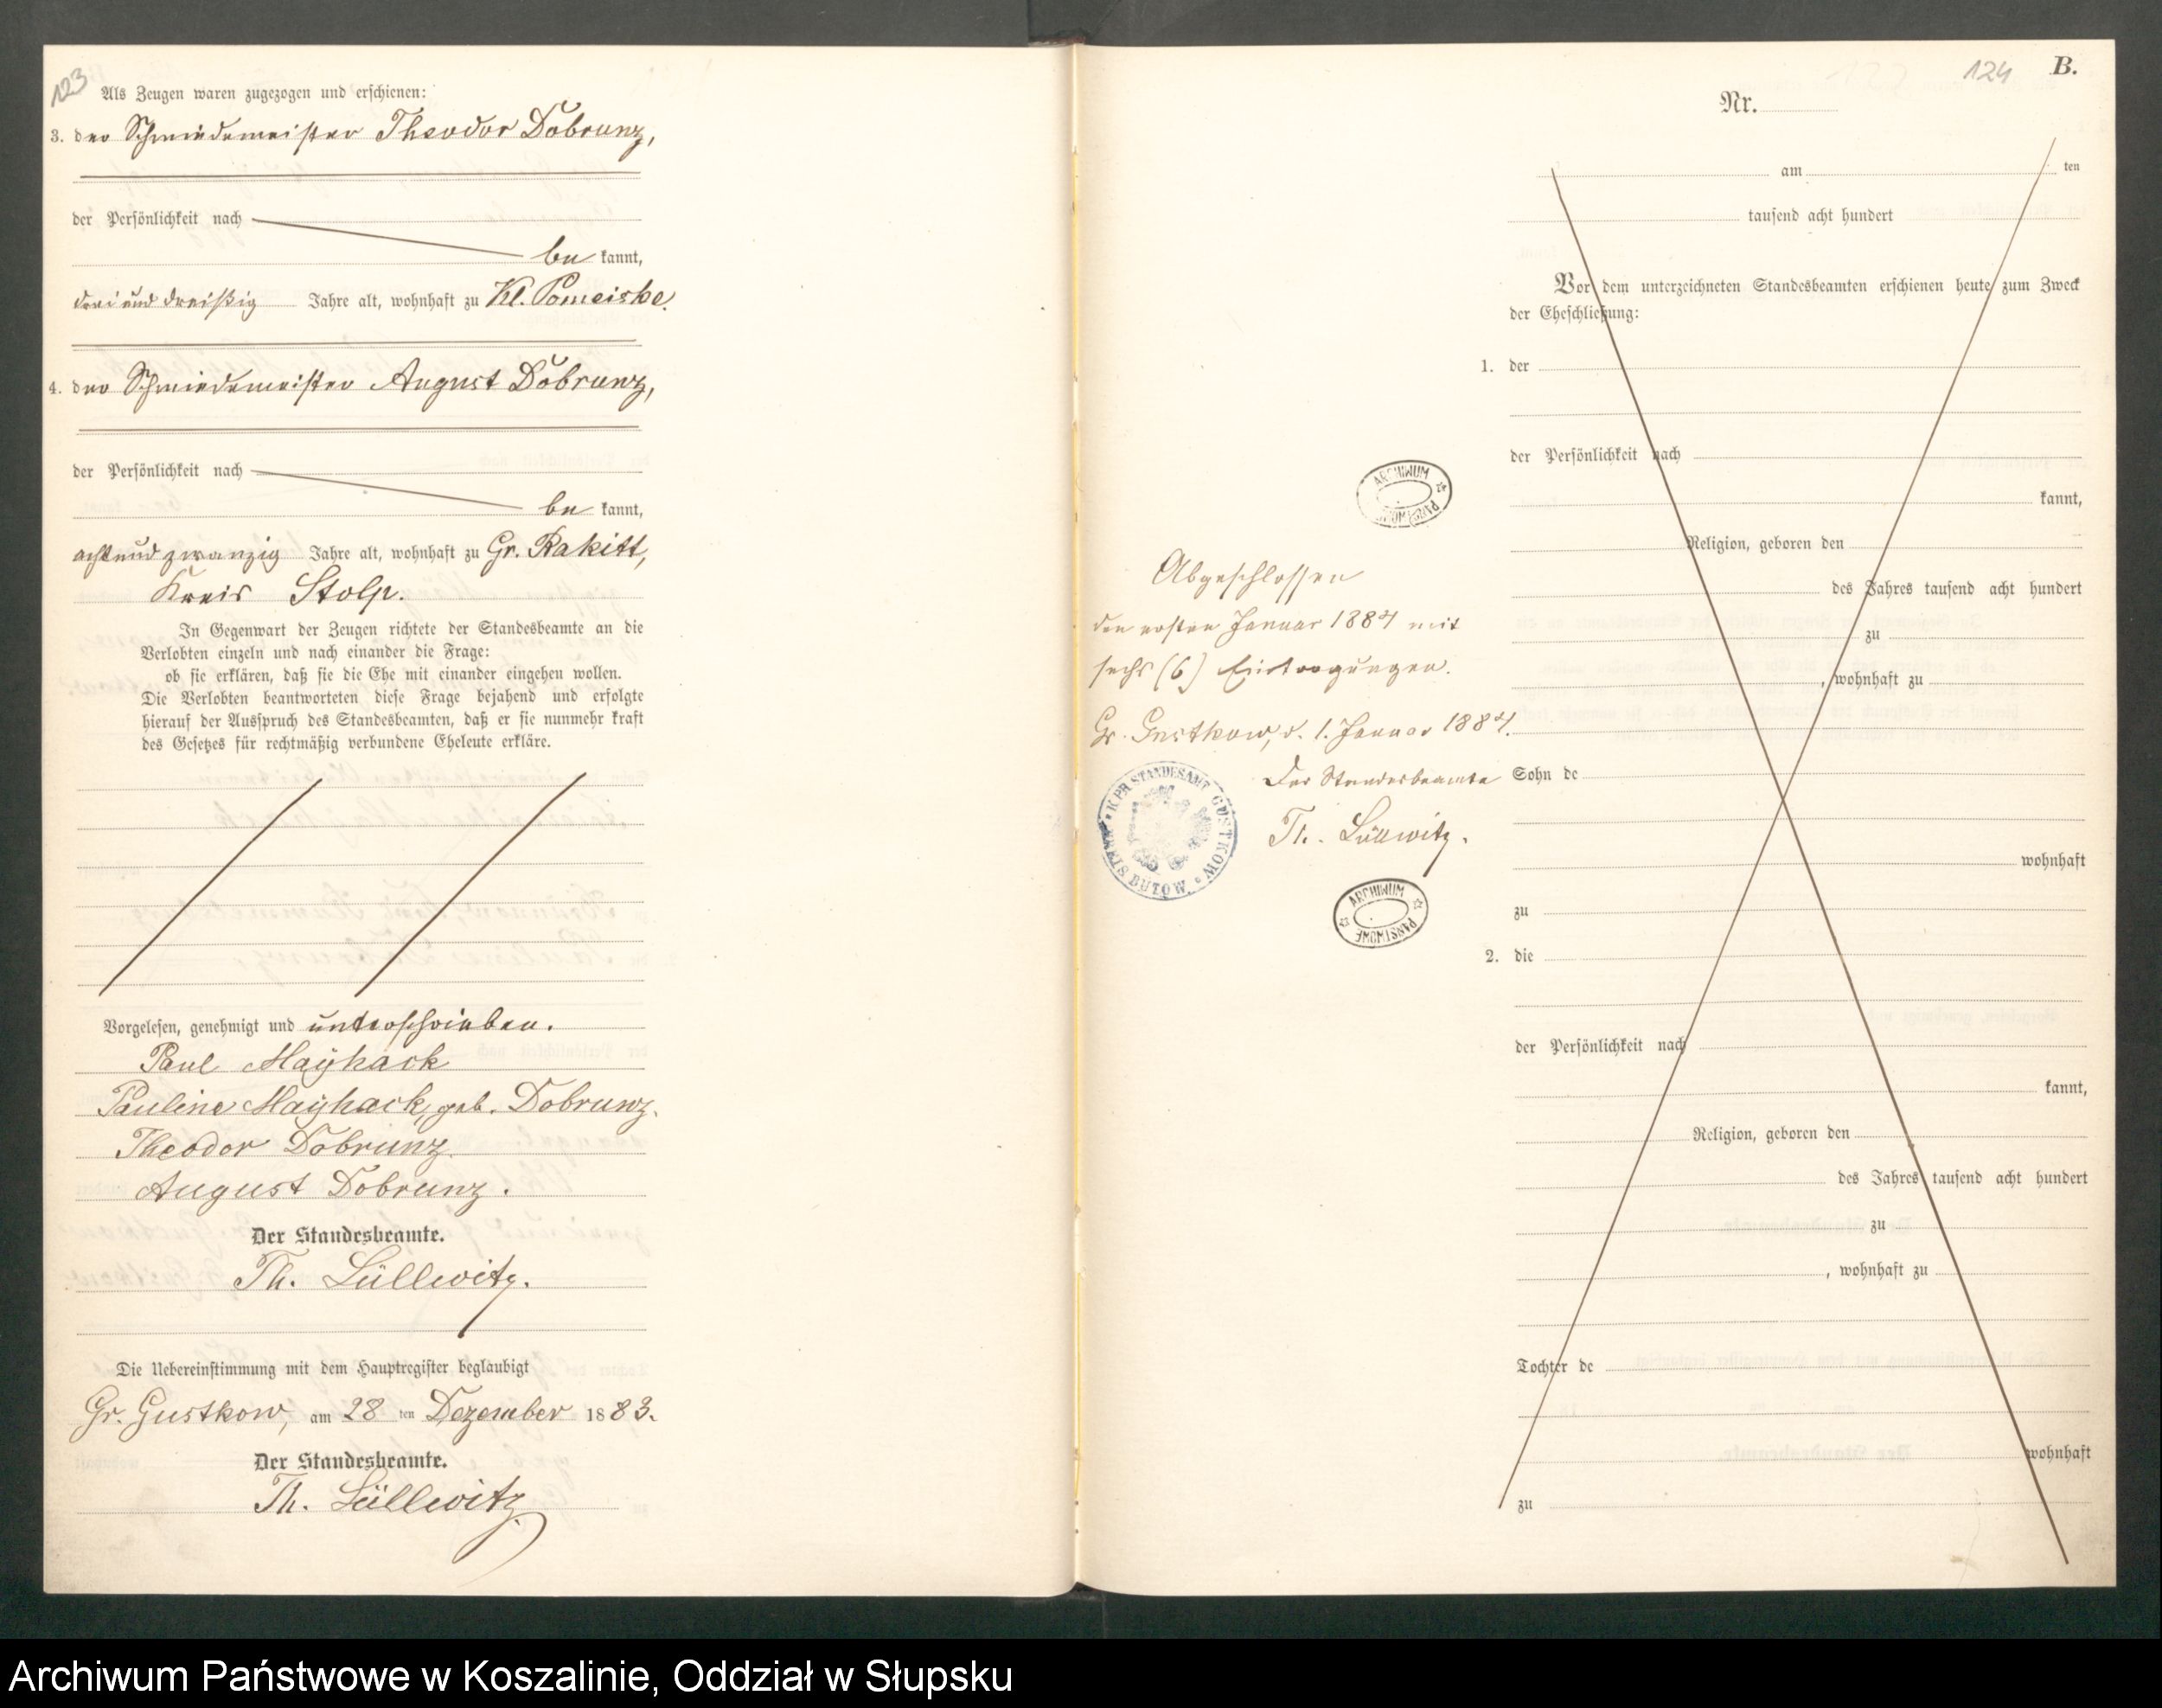 123
Als Zeugen waren zugezogen und erschienen:
3. der Schmiedemeister Theodor Dobrunz,
der Persönlichkeit nach
be kannt,
drei und dreißig Jahre alt, wohnhaft zu Kl. Pomeiske.
4. der Schmiedemeister August Dobrunz,
der Persönlichkeit nach
be kannt,
acht und zwanzig Jahre alt, wohnhaft zu Gr. Rakitt,
Kreis Stolp.
In Gegenwart der Zeugen richtete der Standesbeamte an die
Verlobten einzeln und nach einander die Frage:
ob sie erklären, daß sie die Ehe mit einander eingehen wollen.
Die Verlobten beantworteten diese Frage bejahend und erfolgte
hierauf der Ausspruch des Standesbeamten, daß er sie nunmehr kraft
des Gesetzes für rechtmäßig verbundene Eheleute erkläre.
Vorgelesen, genehmigt und unterschrieben.
Paul Mayhack
Pauline Mayhack, geb. Dobrunz.
Theodor Dobrunz.
August Dobrunz.
Der Standesbeamte.
Th. Lüllwitz.
Die Uebereinstimmung mit dem Hauptregister beglaubigt
Gr. Gustkow, am 28 ten Dezember 1883.
Der Standesbeamte.
Th. Lüllwitz
Abgeschlossen
den ersten Januar 1884 mit
sechs (6) Eintragungen.
Gr. Gustkow, d. 1. Januar 1884.
Der Standesbeamte
Th. Lüllwitz.
K. PR. STANDESAMT GUSTKOW
BÜTOW
ARCHIWUM PAŃSTWOWE
ARCHIWUM PAŃSTWOWE
124 B.
Nr.
am ten
tausend acht hundert
Vor dem unterzeichneten Standesbeamten erschienen heute zum Zweck
der Eheschließung:
1. der
der Persönlichkeit nach
kannt,
Religion, geboren den
des Jahres tausend acht hundert
zu
, wohnhaft zu
Sohn de
wohnhaft
zu
2. die
der Persönlichkeit nach
kannt,
Religion, geboren den
des Jahres tausend acht hundert
zu
, wohnhaft zu
Tochter de
wohnhaft
zu
Archiwum Państwowe w Koszalinie, Oddział w Słupsku